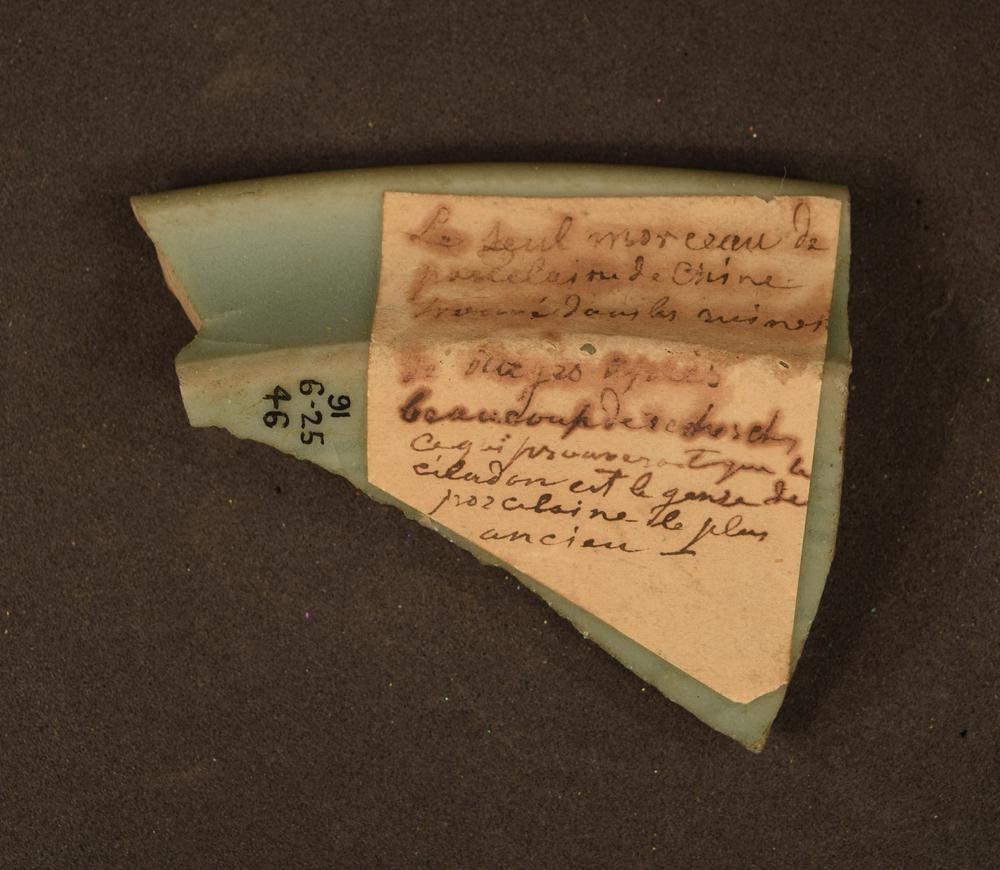 Le seul morceau de
porcelaine de Chine
trouvé dans les ruines
de après
beaucoup de recherches
ce qui prouverait que le
céladon est le genre de
porcelaine le plus
ancien
91
6-25
46